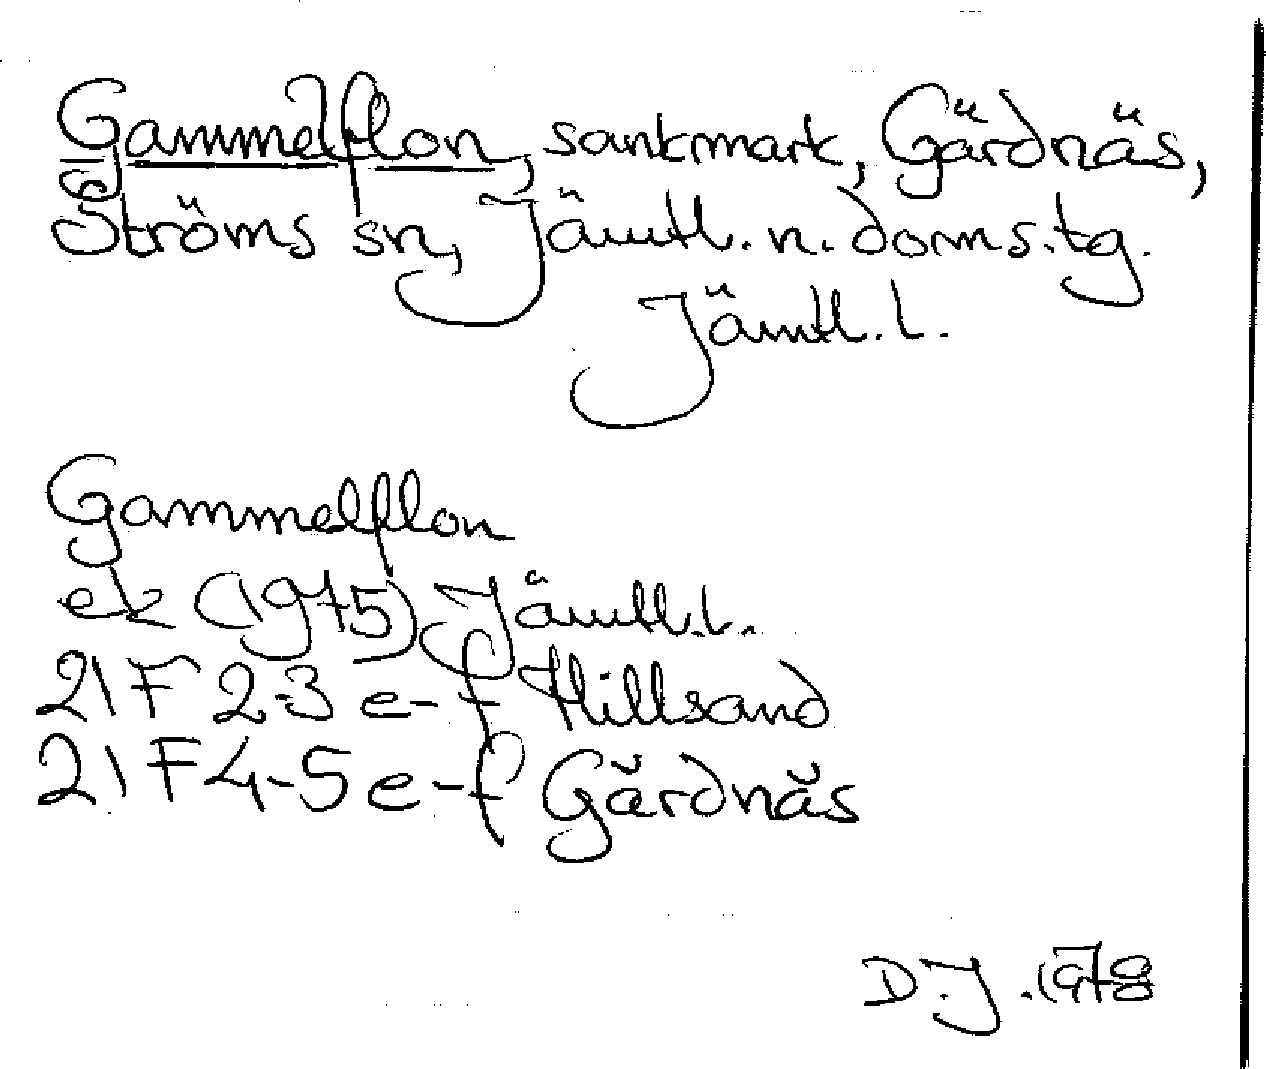 Gammelflon, sankmark, Gärdnäs,
Ströms sn, Jämtl. n. doms.tg.
Jämtl. l.
Gammelflon
ek (1975) Jämtl.l.
21F 2-3 e-f Hillsand
21F 4-5 e-f Gärdnäs
D.J. 1978